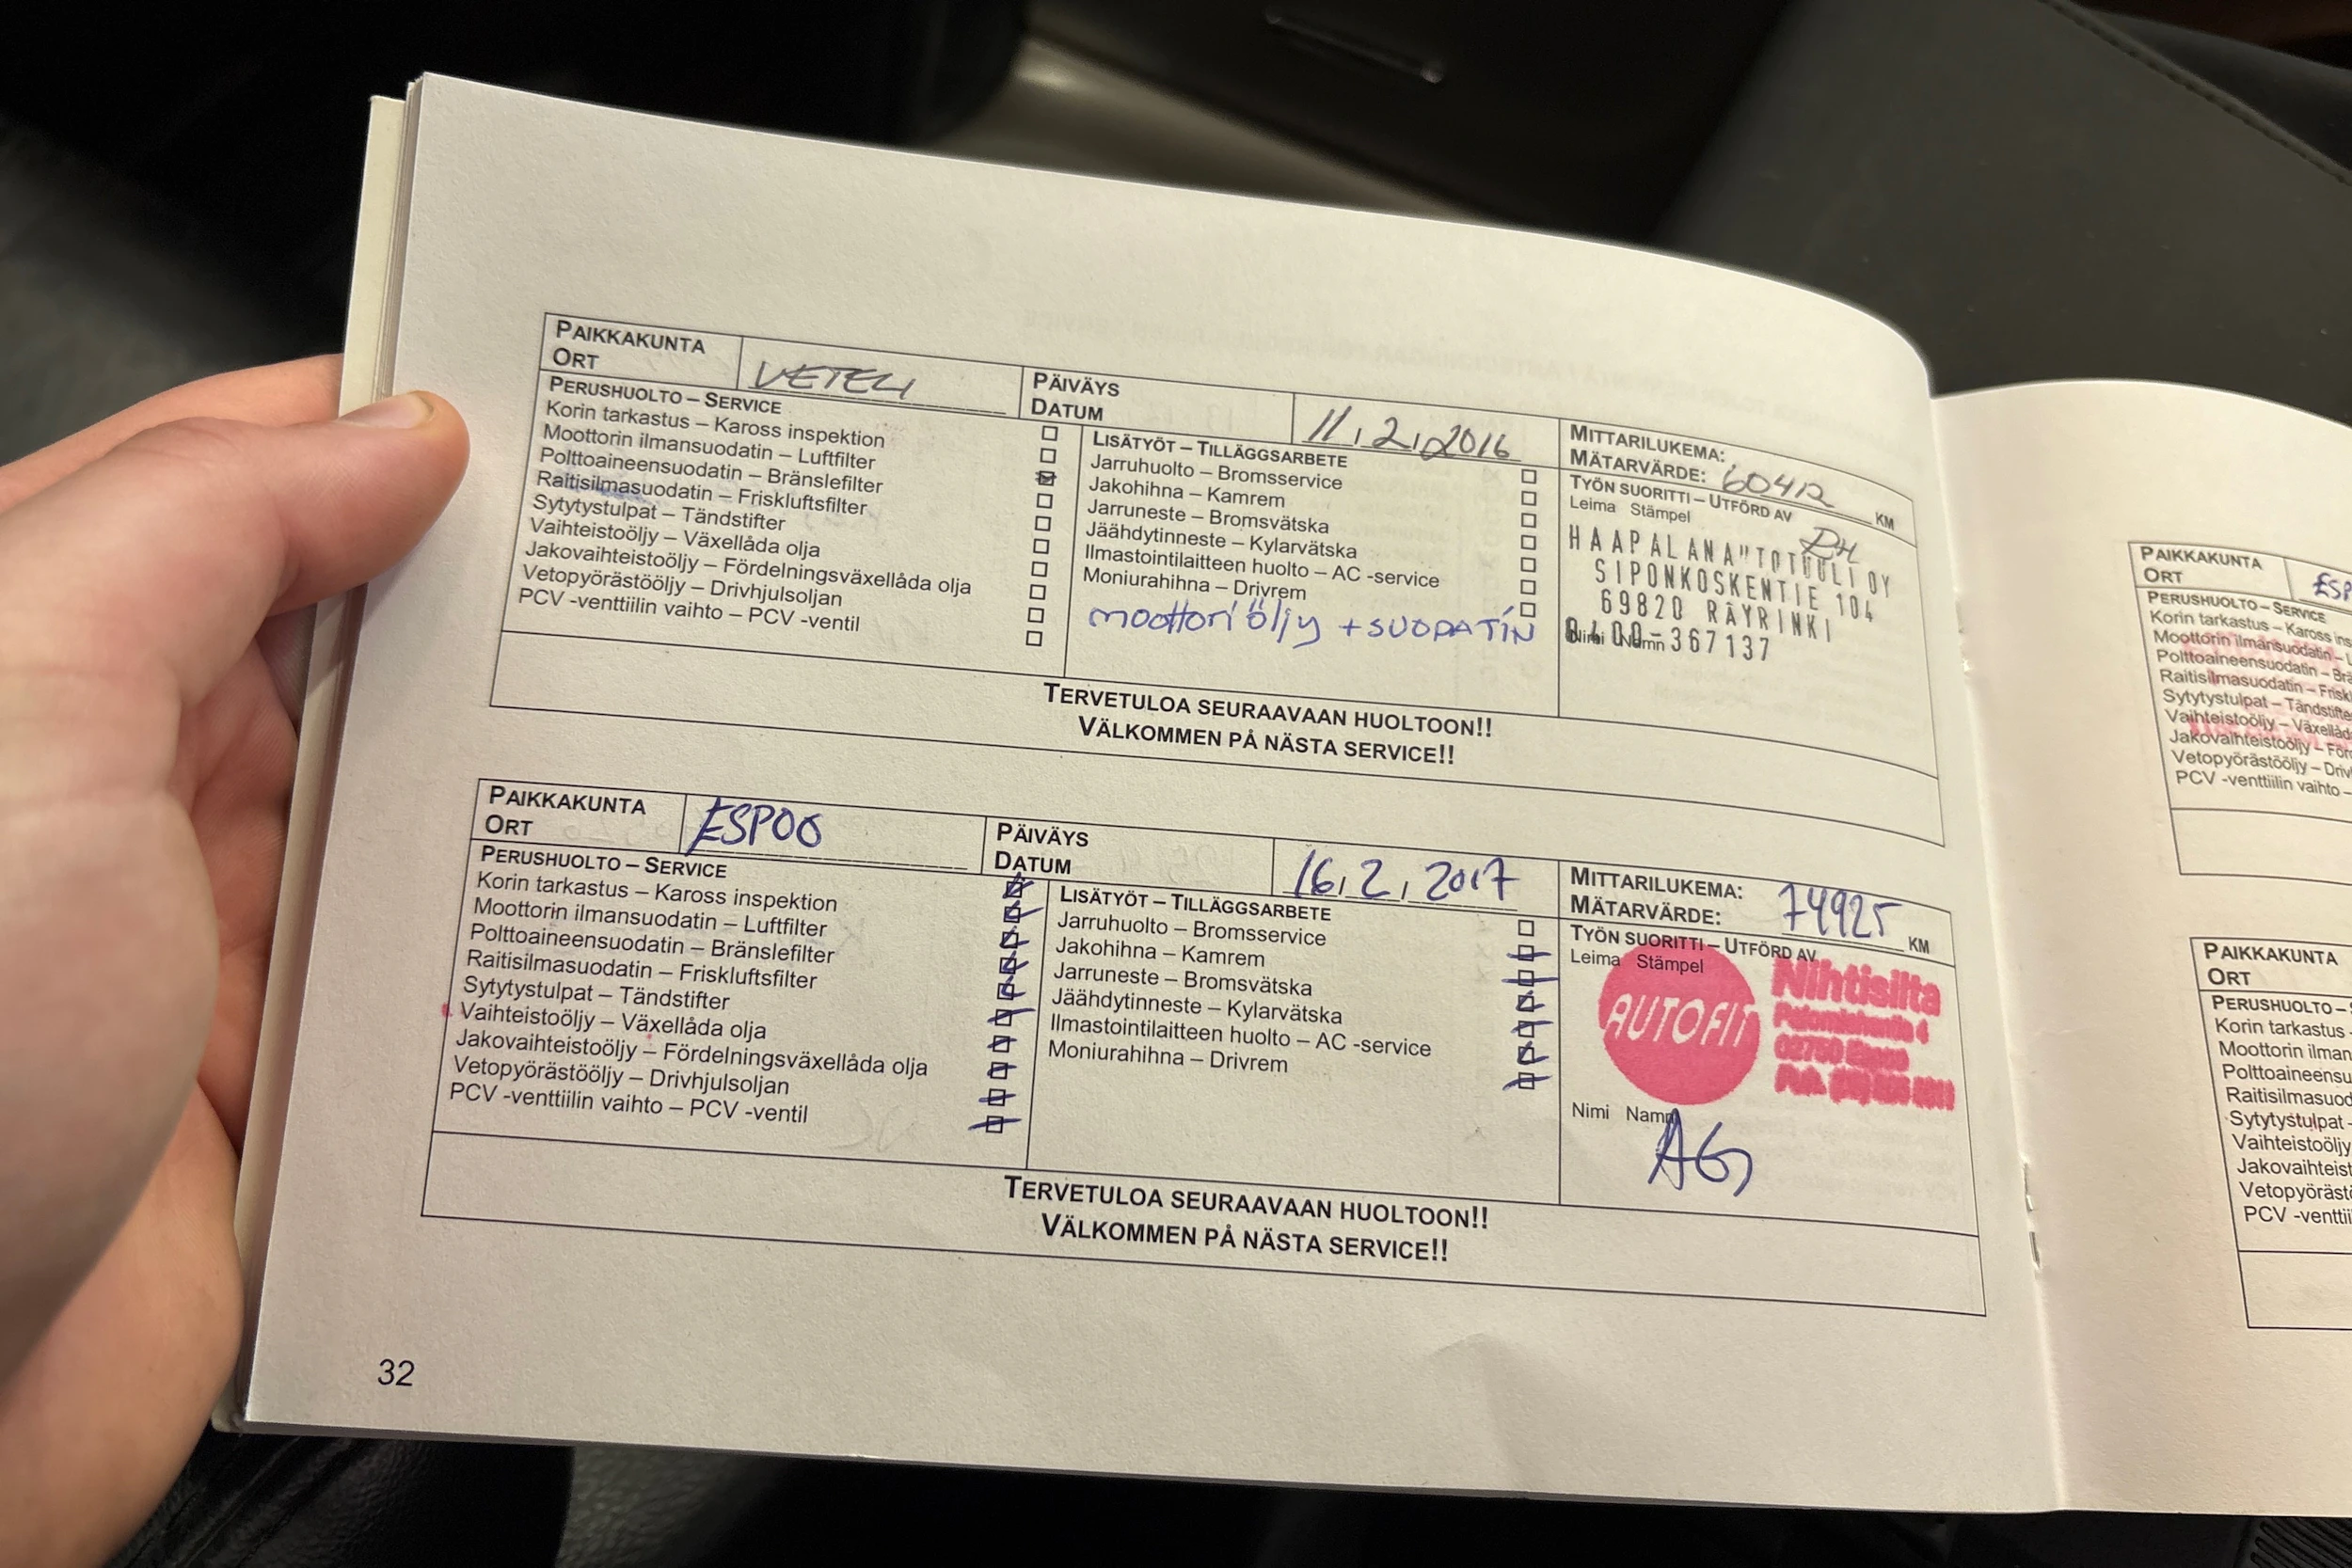 PAIKKAKUNTA
ORT
VETELI
PÄIVÄYS
DATUM
11.2.2016
MITTARILUKEMA:
MÄTARVÄRDE:
KM
PERUSHUOLTO – SERVICE
Korin tarkastus – Kaross inspektion
Moottorin ilmansuodatin – Luftfilter
Polttoaineensuodatin – Bränslefilter
Raitisilmasuodatin – Friskluftsfilter
Sytytystulpat – Tändstifter
Vaihteistoöljy – Växellåda olja
Jakovaihteistoöljy – Fördelningsväxellåda olja
Vetopyörästööljy – Drivhjulsoljan
PCV -venttiilin vaihto – PCV -ventil
LISÄTYÖT – TILLÄGGSARBETE
Jarruhuolto – Bromsservice
Jakohihna – Kamrem
Jarruneste – Bromsvätska
Jäähdytinneste – Kylarvätska
Ilmastointilaitteen huolto – AC -service
Moniurahihna – Drivrem
moottoriöljy + SUODATIN
TYÖN SUORITTI – UTFÖRD AV
Leima Stämpel
SIPONKOSKENTIE 104
69820 RÄYRINKI
0400-367137
Nimi Namn
TERVETULOA SEURAAVAAN HUOLTOON!!
VÄLKOMMEN PÅ NÄSTA SERVICE!!
PAIKKAKUNTA
ORT
ESPOO
PÄIVÄYS
DATUM
16.2.2017
MITTARILUKEMA:
MÄTARVÄRDE:
74925
KM
PERUSHUOLTO – SERVICE
Korin tarkastus – Kaross inspektion
Moottorin ilmansuodatin – Luftfilter
Polttoaineensuodatin – Bränslefilter
Raitisilmasuodatin – Friskluftsfilter
Sytytystulpat – Tändstifter
Vaihteistoöljy – Växellåda olja
Jakovaihteistoöljy – Fördelningsväxellåda olja
Vetopyörästööljy – Drivhjulsoljan
PCV -venttiilin vaihto – PCV -ventil
LISÄTYÖT – TILLÄGGSARBETE
Jarruhuolto – Bromsservice
Jakohihna – Kamrem
Jarruneste – Bromsvätska
Jäähdytinneste – Kylarvätska
Ilmastointilaitteen huolto – AC -service
Moniurahihna – Drivrem
TYÖN SUORITTI – UTFÖRD AV
Leima Stämpel
AUTOFIT
Nihtisilta
Nimi Namn
TERVETULOA SEURAAVAAN HUOLTOON!!
VÄLKOMMEN PÅ NÄSTA SERVICE!!
32
PAIKKAKUNTA
ORT
ESP
PERUSHUOLTO – SERVICE
Korin tarkastus – Kaross ins
Moottorin ilmansuodatin – L
Polttoaineensuodatin – Brä
Raitisilmasuodatin – Friskl
Sytytystulpat – Tändstifte
Vaihteistoöljy – Växellåd
Jakovaihteistoöljy – För
Vetopyörästööljy – Driv
PCV -venttiilin vaihto –
PAIKKAKUNTA
ORT
PERUSHUOLTO –
Korin tarkastus –
Moottorin ilman
Polttoaineensu
Raitisilmasuod
Sytytystulpat –
Vaihteistoöljy
Jakovaihteist
Vetopyöräst
PCV -venttii